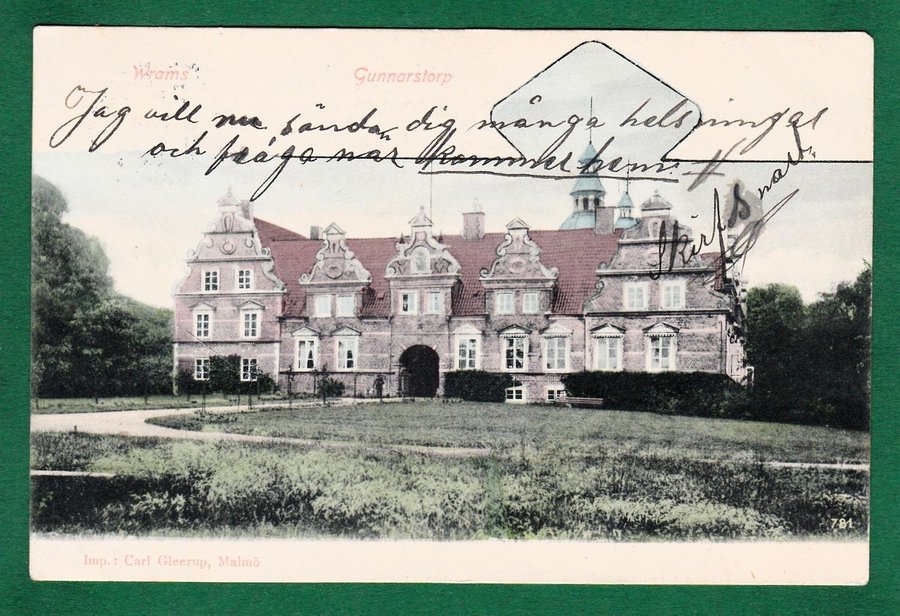 Wrams Gunnarstorp
Jag vill nu sända dig många helsningar
och fråga när kommer hem.
Skrif snart
781
Imp.: Carl Gleerup, Malmö